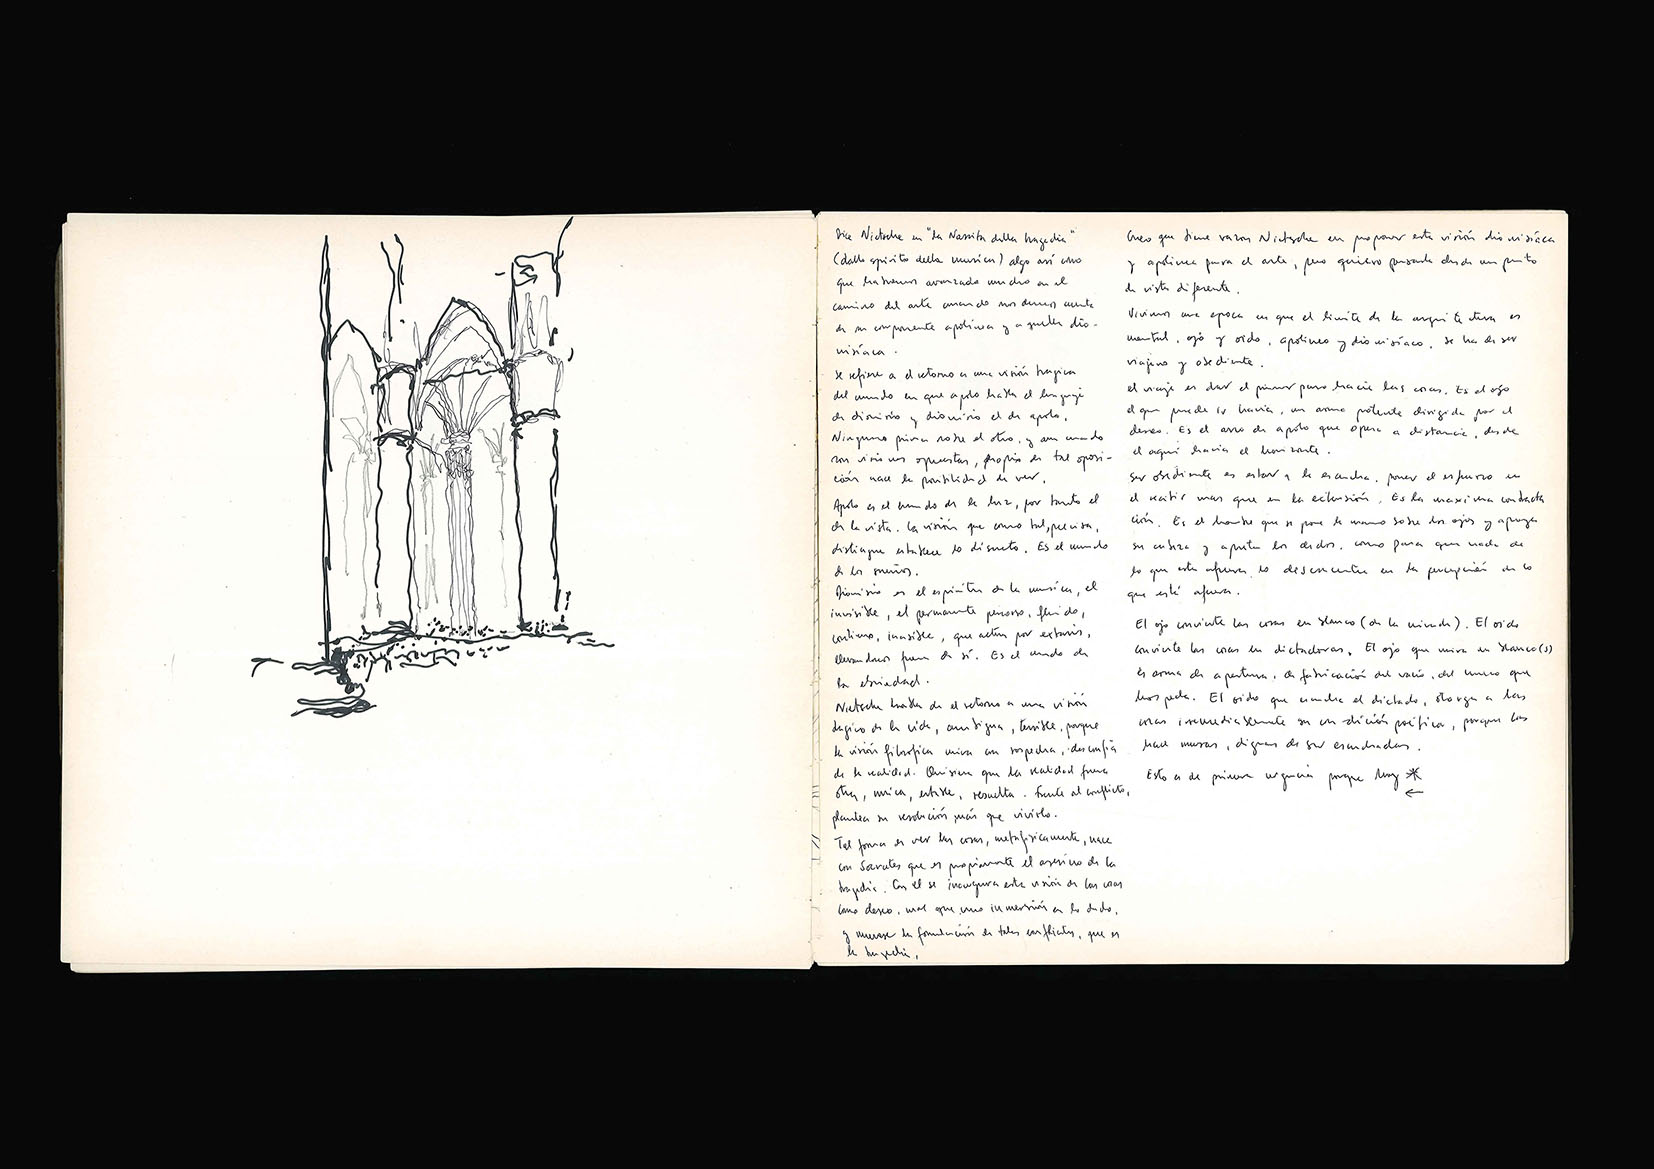 Dice Nietsche en "la Nascita della tragedia"
(dallo spirito della musica) algo así como
que habremos avanzado mucho en el
camino del arte cuando nos demos cuenta
de su componente apolínea y aquella dio-
nisíaca.
Se refiere a el retorno a una visión trágica
del mundo en que apolo habla el lenguaje
de dionisio y dionisio el de apolo.
Ninguno prima sobre el otro, y aun cuando
son visiones opuestas, propio de tal oposi-
ción nace la posibilidad de ver.
Apolo es el mundo de la luz, por tanto el
de la vista. La visión que como tal, precisa,
distingue establece lo discreto. Es el mundo
de los sueños.
Dionisio es el espíritu de la música, el
invisible, el permanente, fluido,
continuo, inasible, que actúa por extasis,
llevandonos fuera de sí. Es el mundo de
la ebriedad.
Nietsche habla de el retorno a una visión
trágica de la vida, ambigua, terrible, porque
la visión filosófica mira con sospecha, desconfía
de la realidad. Quisiera que la realidad fuera
otra, única, estable, resuelta. Frente al conflicto,
plantea su resolución más que vivirlo.
Tal forma de ver las cosas, metafísicamente, nace
con Socrates que es propiamente el asesino de la
tragedia. Con él se inaugura esta visión de las cosas
como deseo, mas que una inmersión en lo dado,
y muere la formulación de tales conflictos, que es
la tragedia.
Creo que tiene razon Nietzsche en proponer esta visión dionisíaca
y apolinea para el arte, pero quiero pensarla desde un punto
de vista diferente.
Vivimos una epoca en que el limite de la arquitectura es
mental, ojo y oido, apolineo y dionisíaco, se ha de ser
viajero y obediente.
El viaje es dar el primer paso hacia las cosas. Es el ojo
el que puede ir hacia, un arma potente dirigida por el
deseo. Es el arco de apolo que opera a distancia, desde
el aquí hacia el horizonte.
Ser obediente es estar a la escucha, poner el esfuerzo en
el recibir mas que en la extensión. Es la maxima contrac
ción. Es el hombre que se pone la mano sobre los ojos y apoya
su cabeza y aprieta los dedos, como para que nada de
lo que esta afuera lo desconcentre en la percepción de lo
que está afuera.
El ojo convierte las cosas en blanco (de la mirada). El oido
convierte las cosas en dictadoras. El ojo que mira en blanco(s)
es arma de apertura, de fabricación del vacío, del hueco que
hospeda. El oido que escucha el dictado, otorga a las
cosas irremediablemente su condición poética, porque las
hace musas, dignas de ser escuchadas.
Esto es de primera urgencia porque hoy *
←